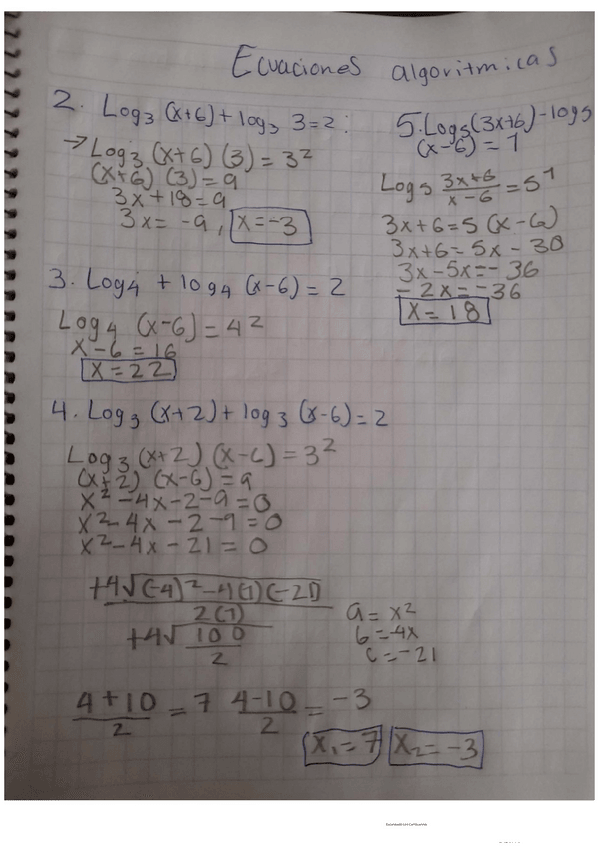 Ecuaciones algoritmicas
2. Log₃ (x+6) + log₃ 3=2:
→ Log₃ (x+6) (3) = 3²
(x+6) (3) = 9
3x+18=9
3x= -9, x=-3
3. Log₄ + log₄ (x-6) = 2
Log₄ (x-6) = 4²
x-6=16
x=22
4. Log₃ (x+2) + log₃ (x-6)=2
Log₃ (x+2) (x-6) = 3²
(x+2) (x-6) = 9
x²-4x-2-9=0
x²-4x-2-9=0
x²-4x-21=0
+4√(-4)²-4(1)(-21)
2(1)
+4√100
2
a= x²
b=-4x
c=-21
4+10/2 = 7 4-10/2 = -3
x₁=7 x₂=-3
5. Log₅ (3x+6) - log₅
(x-6) = 1
Log₅ 3x+6/x-6 = 5¹
3x+6=5 (x-6)
3x+6=5x-30
3x-5x=-36
-2x=-36
x=18